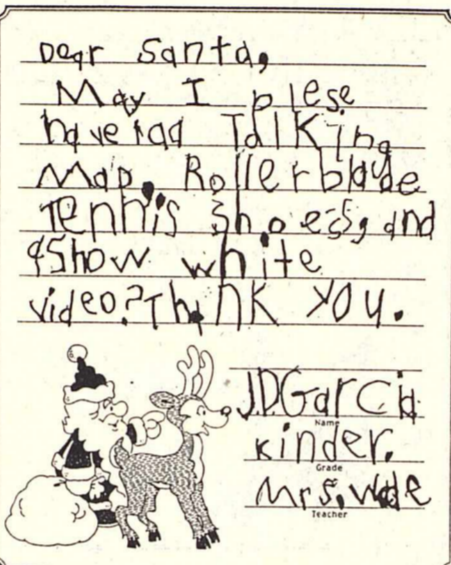 Dear Santa,
May I plese
have taa Talking
Map, Rollerblade
Tennis Shoes, and
a Show white
video? Thank you.
J.D. Garcia
Name
Kinder.
Grade
Mrs. Wade
Teacher